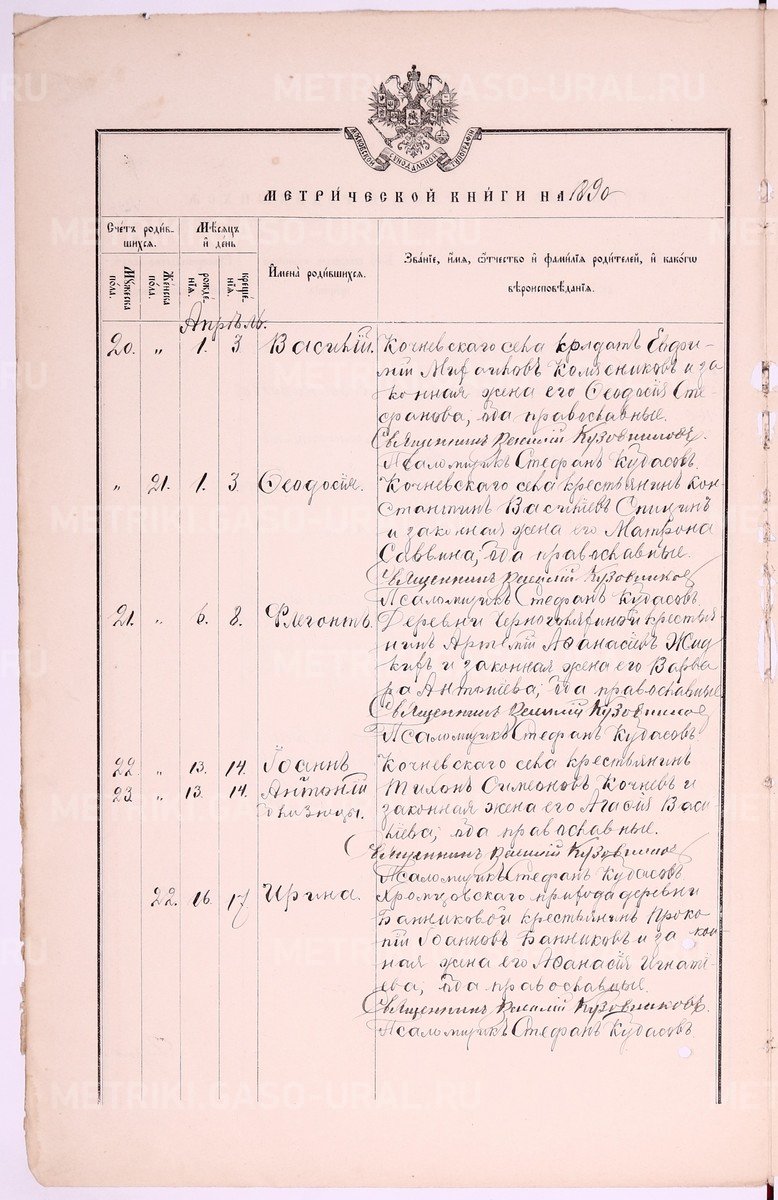 METRIKI.GASO-URAL.RU
МОСКОВСКОЙ СѴНОДАЛЬНОЙ ТИПОГРАФІИ
МЕТРИ́ЧЕСКОЙ КНИ́ГИ НА 1890
Сче́тъ роди́в-
шихся.
Мѣ́сяцъ
и҆ де́нь
И҆мена̀ роди́вшихся.
Зва́нїе, и҆́мя, ѻ҆́тчество и҆ фами́лїѧ роди́телей, и҆ како́гѡ
вѣроисповѣ́данїѧ.
Му́жеска
по́ла.
Же́нска
по́ла.
рожде́-
нїѧ.
креще́-
нїѧ.
Апрѣль.
20. „ 1. 3. Василій. Кочневскаго села солдатъ Евфи-
мій Колясниковъ и за
конная жена его Ѳеодосія Сте-
фанова; оба православные.
Священникъ Василій Кузовниковъ.
Псаломщикъ Стефанъ Кудасовъ.
„ 21. 1. 3. Ѳеодосія. Кочневскаго села крестьянинъ Кон-
стантинъ Василіевъ Спицинъ
и законная жена его Матрона
Саввина; оба православные.
Священникъ Василій Кузовниковъ
Псаломщикъ Стефанъ Кудасовъ
21. „ 6. 8. Флегонтъ. Деревни крестья
нинъ Артемій Аѳанасіевъ
и законная жена его Варва
ра Антоніева; оба православные
Священникъ Василій Кузовниковъ
Псаломщикъ Стефанъ Кудасовъ
22. „ 13. 14. Іоаннъ Кочневскаго села крестьянинъ
23. „ 13. 14. Антоній Тихонъ Симеоновъ Кочневъ и
законная жена его Агаѳія Васи-
ліева; оба православные.
Священникъ Василій Кузовниковъ
Псаломщикъ Стефанъ Кудасовъ
22. 16. 17 Ирина. Хромцовскаго прихода деревни
Банниковой крестьянинъ Проко
пій Іоанновъ Банниковъ и закон
ная жена его Аѳанасія Игнаті-
ева; оба православные.
Священникъ Василій Кузовниковъ.
Псаломщикъ Стефанъ Кудасовъ